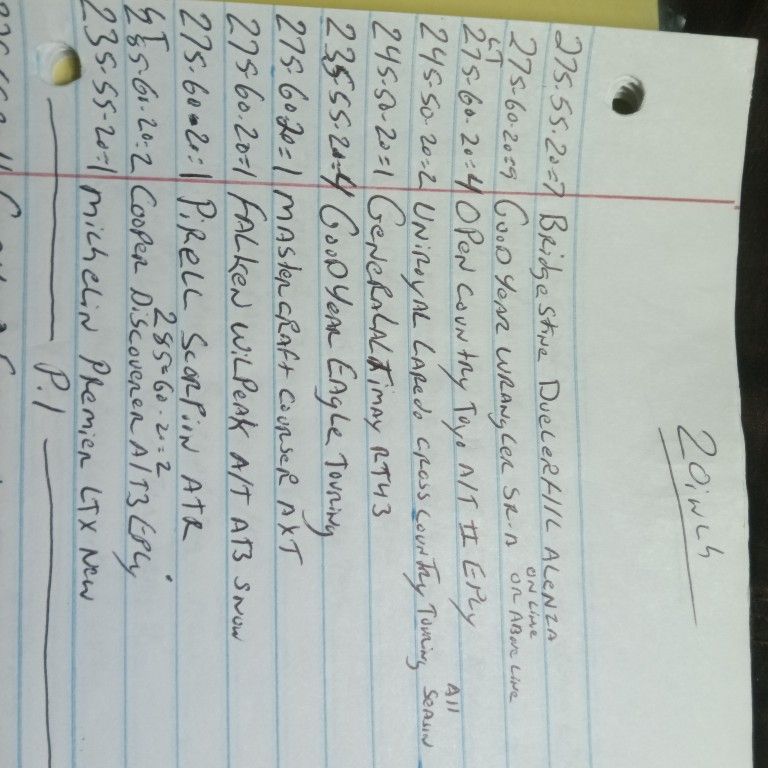 20inch
275.55.20=7 Bridgestine DuelerH/L ALenza
275-60-20=9 GooD Year Wrangler SR-A ON Line OR ABove Line
LT 275-60.20=4 OPEN Country Toyo A/T II EPLy
245-50.20=2 Uniroyal Laredo Cross Country Touring All Season
245-50-20=1 General
235-55-20=4 GooD Year Eagle Touring
275-60 20=1 Mastercraft Courser AXT
275-60.20=1 FALKen WiLPeak A/T AT3 Snow
275-60-20=1 PiRELL Scorpiin ATR
LT 285-60-20=2 Cooper Discoverer A/T3 EPLy
285-60-20=2
235-55-20=1 Michelin Premier LTX New
P.1